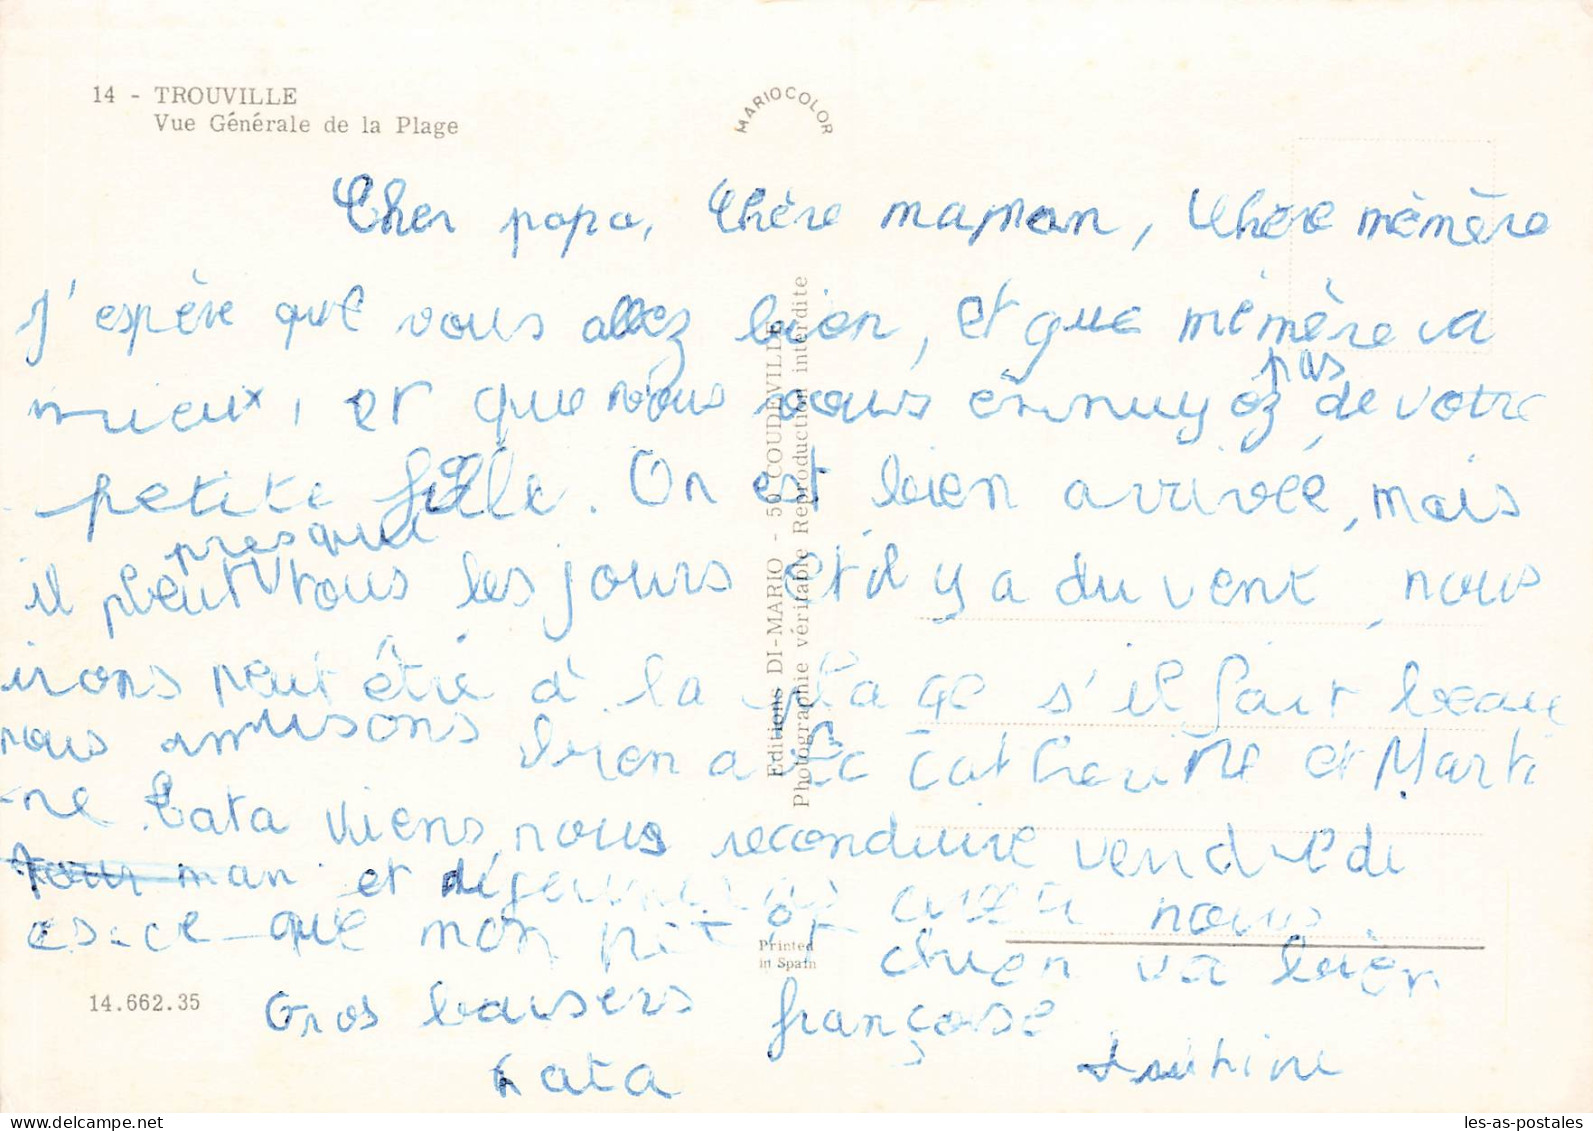 14 - TROUVILLE
Vue Générale de la Plage
MARIOCOLOR
Cher papa, Chère maman, Chère mémère
J'espère que vous allez bien, et que mémère va
mieux, et que vous vous ennuyez pas de votre
petite fille. On est bien arrivée, mais
il pleut presque tous les jours et il y a du vent, nous
irons peut être à la plage s'il fait beau
nous amusons bien avec Catherine et Marti
-ne. Tata viens nous reconduire vendredi
man et avec nous
es-ce que mon petit chien va bien
Gros baisers françoise
tata
Editions DI-MARIO - 50 COUDEVILLE
Photographie véritable Reproduction interdite
Printed
in Spain
14.662.35
les-as-postales
www.delcampe.net